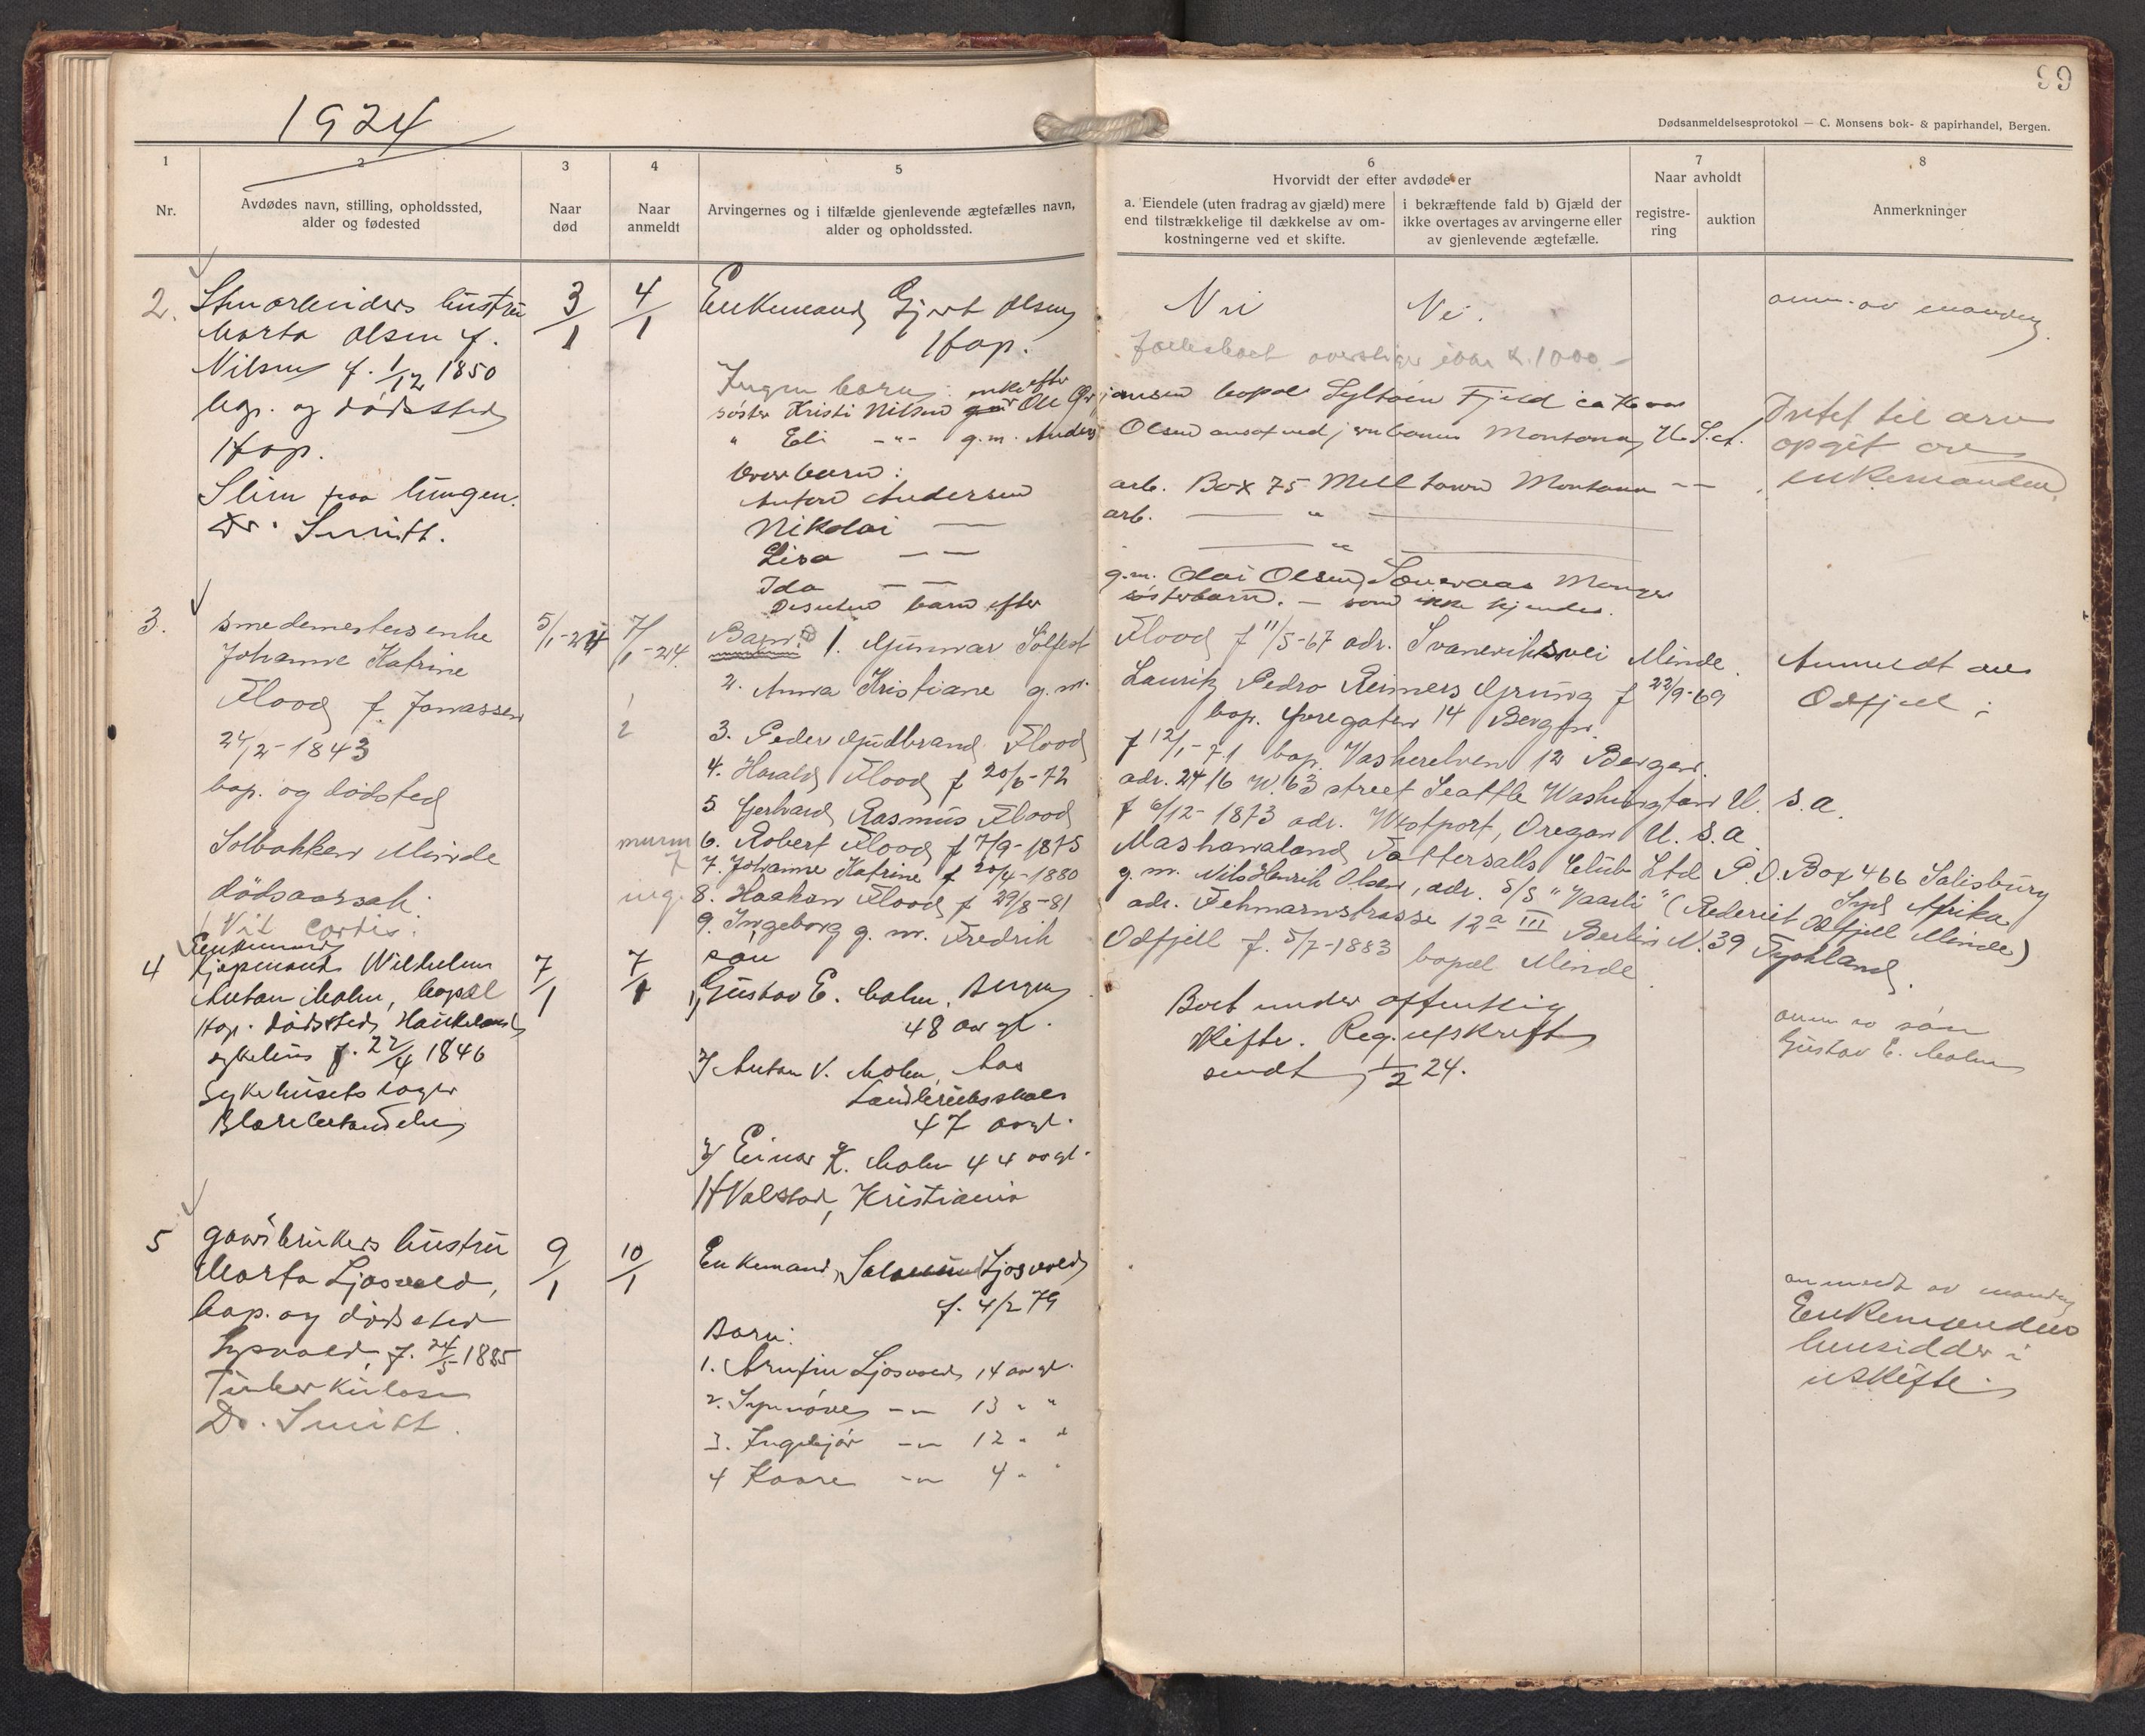 99
1924
Dødsanmeldelsesprotokol — C. Monsens bok- & papirhandel, Bergen.
1
2
3
4
5
6
7
8
Nr.
Avdødes navn, stilling, opholdssted,
alder og fødested
Naar
død
Naar
anmeldt
Arvingernes og i tilfælde gjenlevende ægtefælles navn,
alder og opholdssted.
Hvorvidt der efter avdøde er
a. Eiendele (uten fradrag av gjæld) mere
end tilstrækkelige til dækkelse av om-
kostningerne ved et skifte.
i bekræftende fald b) Gjæld der
ikke overtages av arvingerne eller
av gjenlevende ægtefælle.
Naar avholdt
registre-
ring
auktion
Anmerkninger
2.
hustru
Marta Olsen f.
Nilsen f. 1/12 1850
bop. og dødssted
Hop.
Slim paa lungen.
Dr. Smitt.
3/1
4/1
Enkemand Gjert Olsen
Hop.
Ingen barn. enke efter
søster Kristi Nilsen Ole
" Eli -"- g.m. Anders
barn:
Anton Andersen
Nikolai —
Lisa — —
Ida — —
Desuten barn efter
Nei
Nei.
Fællesboet overstiger ikke kr. 1000.-
bopæl Fjeld
Olsen Montana, U.S.A.
arb. Box 75 Milltown Montana — —
arb. — " —
— " —
g.m. Olai Olsen, Manger
søsterbarn. - som ikke kjendes.
anm. av manden.
til arv
opgit av
enkemanden.
3.
Smedemesters enke
Johanne Katrine
Flood f. Jonassen
24/2-1843
bop. og dødsted
Solbakken Minde
dødsaarsak:
Vit. Cordis.
5/1-24
7/1-24.
1
2
murm
7
ing.
Barn: 1. Gunnar Solfest
2. Anna Kristiane g.m.
3. Peder Gudbrand Flood
4. Harald Flood f 20/6-72
5 Gerhard Rasmus Flood
6. Robert Flood f 7/9-1875
7. Johanne Katrine f 20/4-1880
8. Haakon Flood f 29/8-81
9. Ingeborg g.m. Fredrik
Flood f 11/5-67 adr. Minde.
Lauritz Pedro Reimers Grung f 22/9-69
bop. Øvregaten 14 Bergen.
f 12/1-71 bop. Vaskerelven 12 Bergen.
adr. 2416 W. 63 street Seattle Washington U.S.A.
f 6/12-1873 adr. Westport, Oregon U.S.A.
Mashonaland Tattersalls Club Ltd P.O. Box 466 Salisbury
Syd Afrika
g.m. Nils Henrik Olsen, adr. S/S "Vaarli" (Rederiet Odfjell Minde)
adr. Fehmarnstrasse 12a III Berlin N.39 Tyskland.
Odfjell f. 5/7-1883 bopæl Minde
Anmeldt av
Odfjell
4
Enkemand
Kjøpmand Wilhelm
Anton Malm, bopæl
Hop. dødssted, Haukeland
sykehus f. 22/4 1846
Sykehusets læger
7/1
7/1
søn
1, Gustav E. Malm, Bergen
48 aar gl.
2, Anton V. Malm, Aas
Landbruksskole
47 aar gl.
3, Einar K. Malm 44 aar gl.
Hvalstad, Kristiania
Boet under offentlig
skifte. Reg. utskrift
sendt 1/2 24.
anm av søn
Gustav E. Malm
5
gaardbrukers hustru
Marta Ljosvold,
bop. og dødssted
f. 24/5-1885
Tuberkulose
Dr. Smitt.
9/1
10/1
Enkemand, Ljosvold
f. 4/2 79
Barn:
1. Arnfin Ljosvold 14 aar gl.
2. Synnöve -"- 13 " "
3. Ingebjør -"- 12 " "
4 Kaare -"- 4 " "
anmeldt av manden
Enkemanden
hensidder i
uskifte